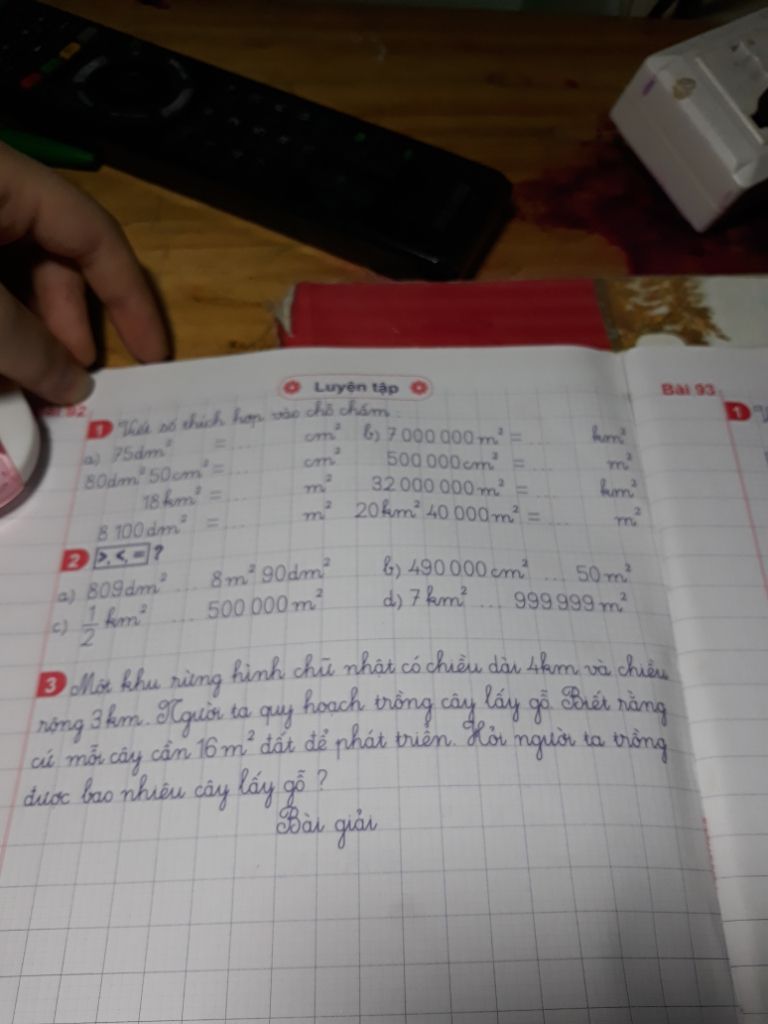 Luyện tập
Bài 93
92
1 Viết số thích hợp vào chỗ chấm:
1
a) 75dm² = ... cm² b) 7 000 000m² = ... km²
80dm² 50cm² = ... cm² 500 000cm² = ... m²
18km² = ... m² 32 000 000m² = ... km²
8 100dm² = ... m² 20km² 40 000m² = ... m²
2 >, <, = ?
a) 809dm² ... 8m² 90dm² b) 490 000cm² ... 50m²
c) 1/2 km² ... 500 000m² d) 7km² ... 999 999m²
3 Một khu rừng hình chữ nhật có chiều dài 4km và chiều
rộng 3km. Người ta quy hoạch trồng cây lấy gỗ. Biết rằng
cứ mỗi cây cần 16m² đất để phát triển. Hỏi người ta trồng
được bao nhiêu cây lấy gỗ ?
Bài giải